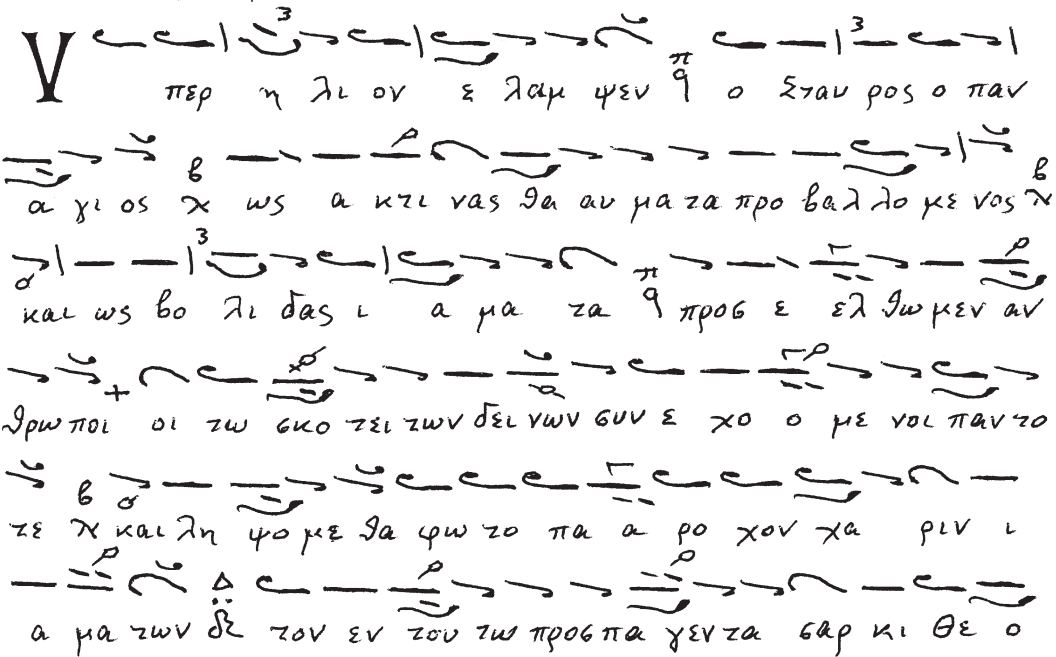 Υ περ η λι ον ε λαμ ψεν π q ο Σταυ ρος ο παν
α γι ος β ως α κτι νας θα αυ μα τα προ βαλ λο με νος β
και ως βο λι δας ι α μα τα π q προς ε ελ θω μεν αν
θρω ποι οι τω σκο τει των δει νων συν ε χο ο με νοι παν το
τε β και λη ψο με θα φω το πα α ρο χον χα ριν ι
α μα των Δ τον εν του τω προσ πα γεν τα σαρ κι Θε ο